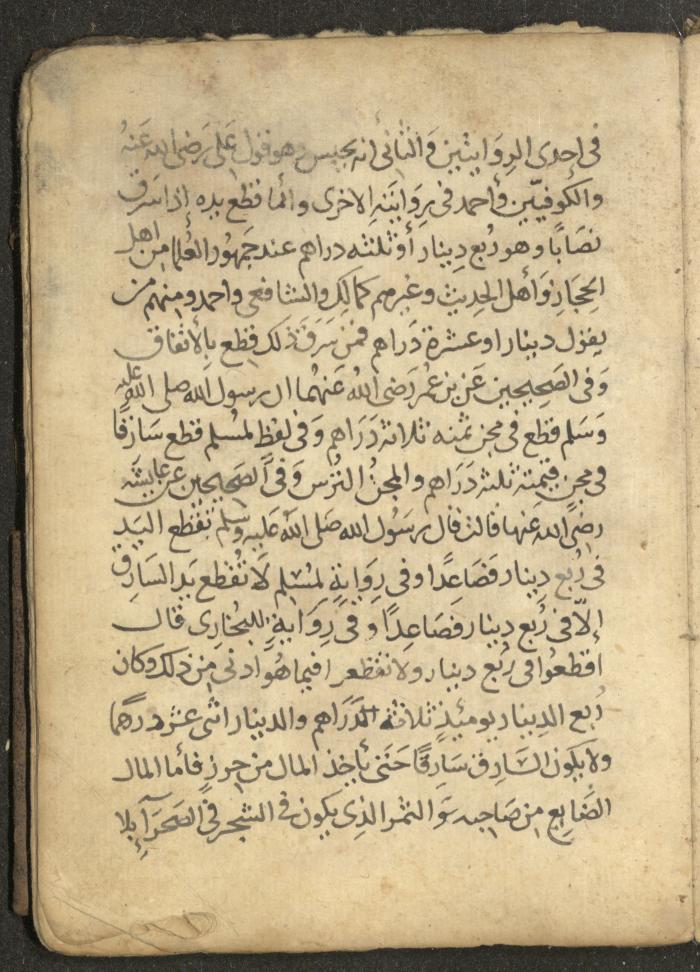 فى احدى الروايتين والثانى انه يحبس وهو قول على رضى الله عنه
والكوفيين وأحمد فى روايته الاخرى وانما قطع يده إذا سرق
نصابا وهو ربع دينار أو ثلثه دراهم عند جمهور العلما من اهل
الحجاز وأهل الحديث وغيرهم كمالك والشافعى واحمد ومنهم من
يقول دينار او عشرة دراهم فمن سرق ذلك قطع بالاتفاق
وفى الصحيحين عن بن عمر رضى الله عنهما ان رسول الله صلى الله عليه
وسلم قطع فى مجن ثمنه ثلاثة دراهم وفى لفظ لمسلم قطع سارقا
فى مجن قيمته ثلثه دراهم والمجن الترس وفى الصحيحين عن عايشه
رضى الله عنها قالت قال رسول الله صلى الله عليه وسلم تقطع اليد
فى ربع دينار فصاعدا وفى رواية لمسلم لا تقطع يد السارق
إلا فى ربع دينار فصاعدا وفى رواية للبخارى قال
اقطعوا فى ربع دينار ولا تقطعوا فيما هو ادنى من ذلك وكان
ربع الدينار يوميئذ ثلاثة الدراهم والدينار اثنى عشر درهما
ولا يكون السارق سارقا حتى يأخذ المال من حرز فأما المال
الضايع من صاحبه والثمر الذى يكون فى الشجر فى الصحرآ بلا